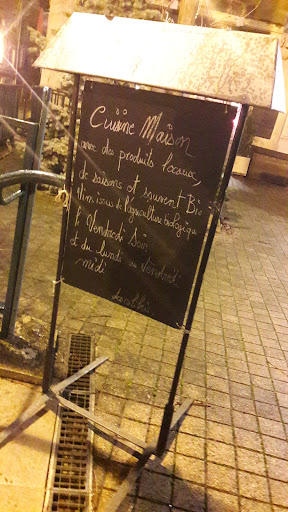 Cuisine Maison
avec des produits locaux,
de saisons et souvent Bio
Vin issus de l'agriculture biologique
le Vendredi Soir
et du lundi au Vendredi
midi